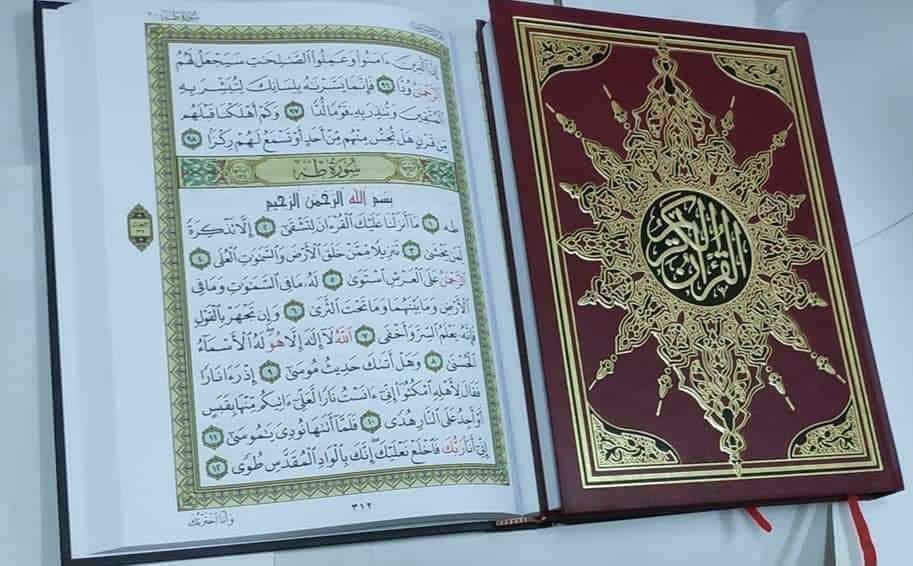 سُورَةُ طه
إِنَّ ٱلَّذِينَ ءَامَنُوا۟ وَعَمِلُوا۟ ٱلصَّٰلِحَٰتِ سَيَجْعَلُ لَهُمُ
ٱلرَّحْمَٰنُ وُدًّا ٩٦ فَإِنَّمَا يَسَّرْنَٰهُ بِلِسَانِكَ لِتُبَشِّرَ بِهِ
ٱلْمُتَّقِينَ وَتُنذِرَ بِهِۦ قَوْمًا لُّدًّا ٩٧ وَكَمْ أَهْلَكْنَا قَبْلَهُم
مِّن قَرْنٍ هَلْ تُحِسُّ مِنْهُم مِّنْ أَحَدٍ أَوْ تَسْمَعُ لَهُمْ رِكْزًا ٩٨
سُورَةُ طه
بسم الله الرحمن الرحيم
طه ١ مَآ أَنزَلْنَا عَلَيْكَ ٱلْقُرْءَانَ لِتَشْقَىٰٓ ٢ إِلَّا تَذْكِرَةً
لِّمَن يَخْشَىٰ ٣ تَنزِيلًا مِّمَّنْ خَلَقَ ٱلْأَرْضَ وَٱلسَّمَٰوَٰتِ ٱلْعُلَى ٤
ٱلرَّحْمَٰنُ عَلَى ٱلْعَرْشِ ٱسْتَوَىٰ ٥ لَهُۥ مَا فِى ٱلسَّمَٰوَٰتِ وَمَا فِى
ٱلْأَرْضِ وَمَا بَيْنَهُمَا وَمَا تَحْتَ ٱلثَّرَىٰ ٦ وَإِن تَجْهَرْ بِٱلْقَوْلِ
فَإِنَّهُۥ يَعْلَمُ ٱلسِّرَّ وَأَخْفَى ٧ ٱللَّهُ لَآ إِلَٰهَ إِلَّا هُوَ ۖ لَهُ ٱلْأَسْمَآءُ
ٱلْحُسْنَىٰ ٨ وَهَلْ أَتَىٰكَ حَدِيثُ مُوسَىٰٓ ٩ إِذْ رَءَا نَارًا
فَقَالَ لِأَهْلِهِ ٱمْكُثُوٓا۟ إِنِّىٓ ءَانَسْتُ نَارًا لَّعَلِّىٓ ءَاتِيكُم مِّنْهَا بِقَبَسٍ
أَوْ أَجِدُ عَلَى ٱلنَّارِ هُدًى ١٠ فَلَمَّآ أَتَىٰهَا نُودِىَ يَٰمُوسَىٰٓ ١١
إِنِّىٓ أَنَا۠ رَبُّكَ فَٱخْلَعْ نَعْلَيْكَ ۖ إِنَّكَ بِٱلْوَادِ ٱلْمُقَدَّسِ طُوًى ١٢
٣١٢
وَأَنَا ٱخْتَرْتُكَ
القرآن الكريم